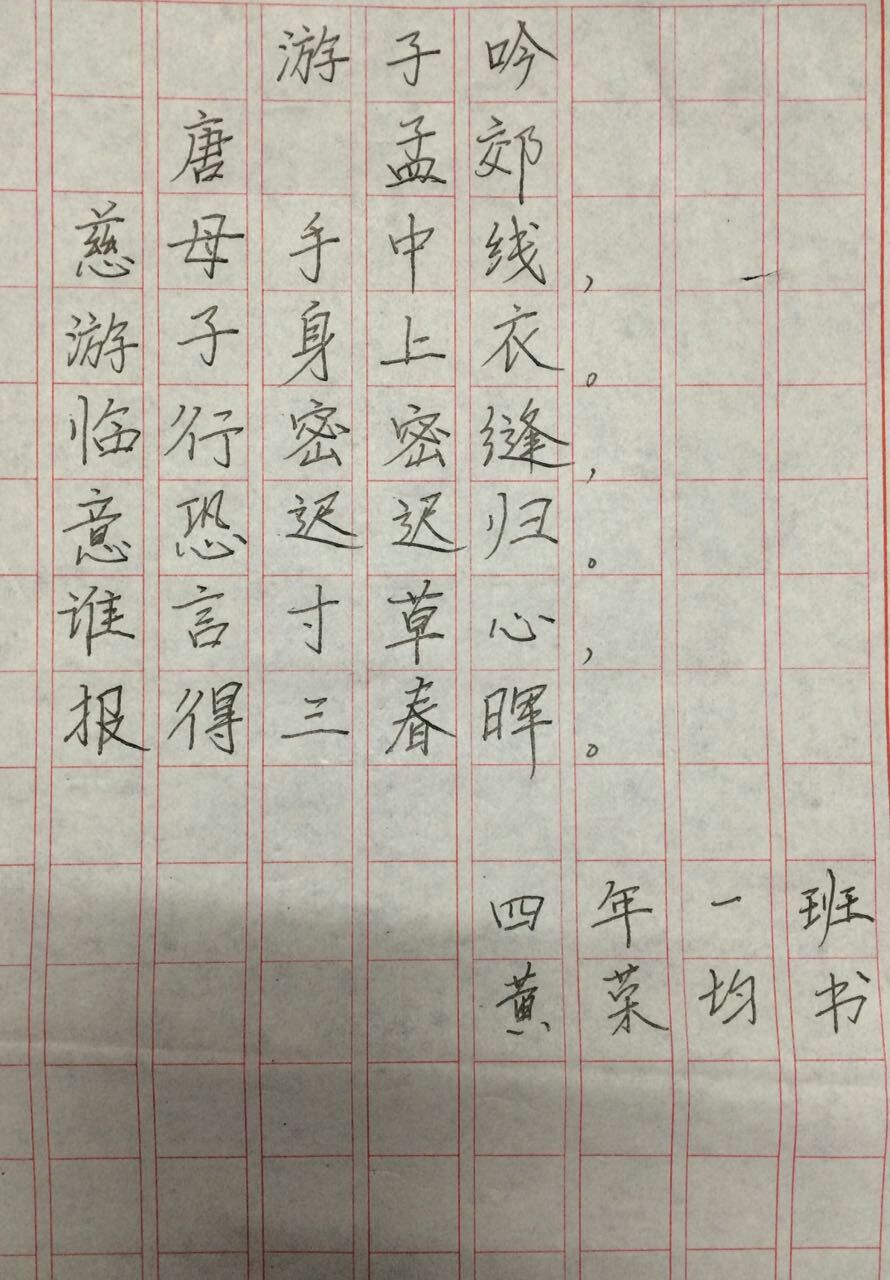 游子吟
唐 孟郊
慈母手中线，
游子身上衣。
临行密密缝，
意恐迟迟归。
谁言寸草心，
报得三春晖。
四年一班
黄菜均书